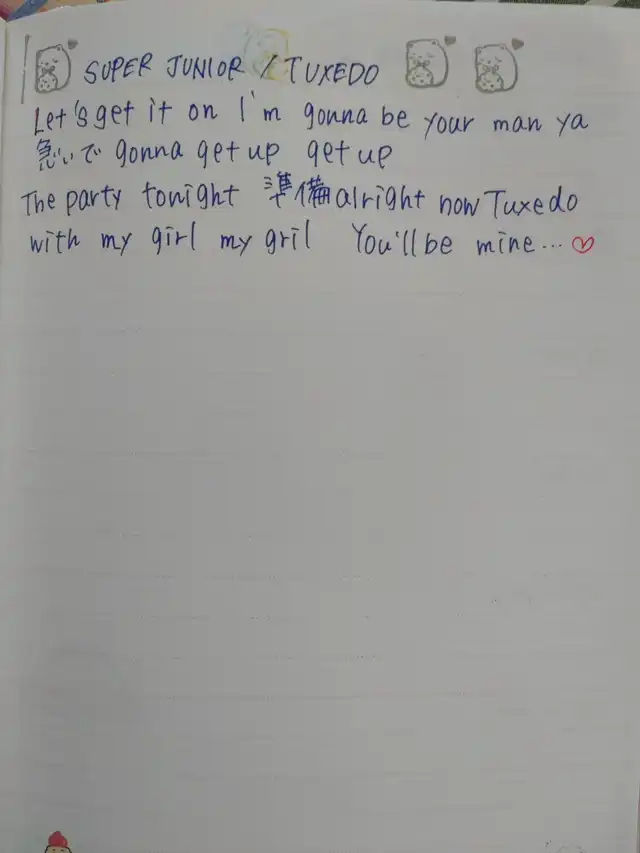 SUPER JUNIOR / TUXEDO
Let's get it on I'm gonna be your man ya
急いで gonna get up get up
The party tonight 準備 alright now Tuxedo
with my girl my gril You'll be mine... ♡